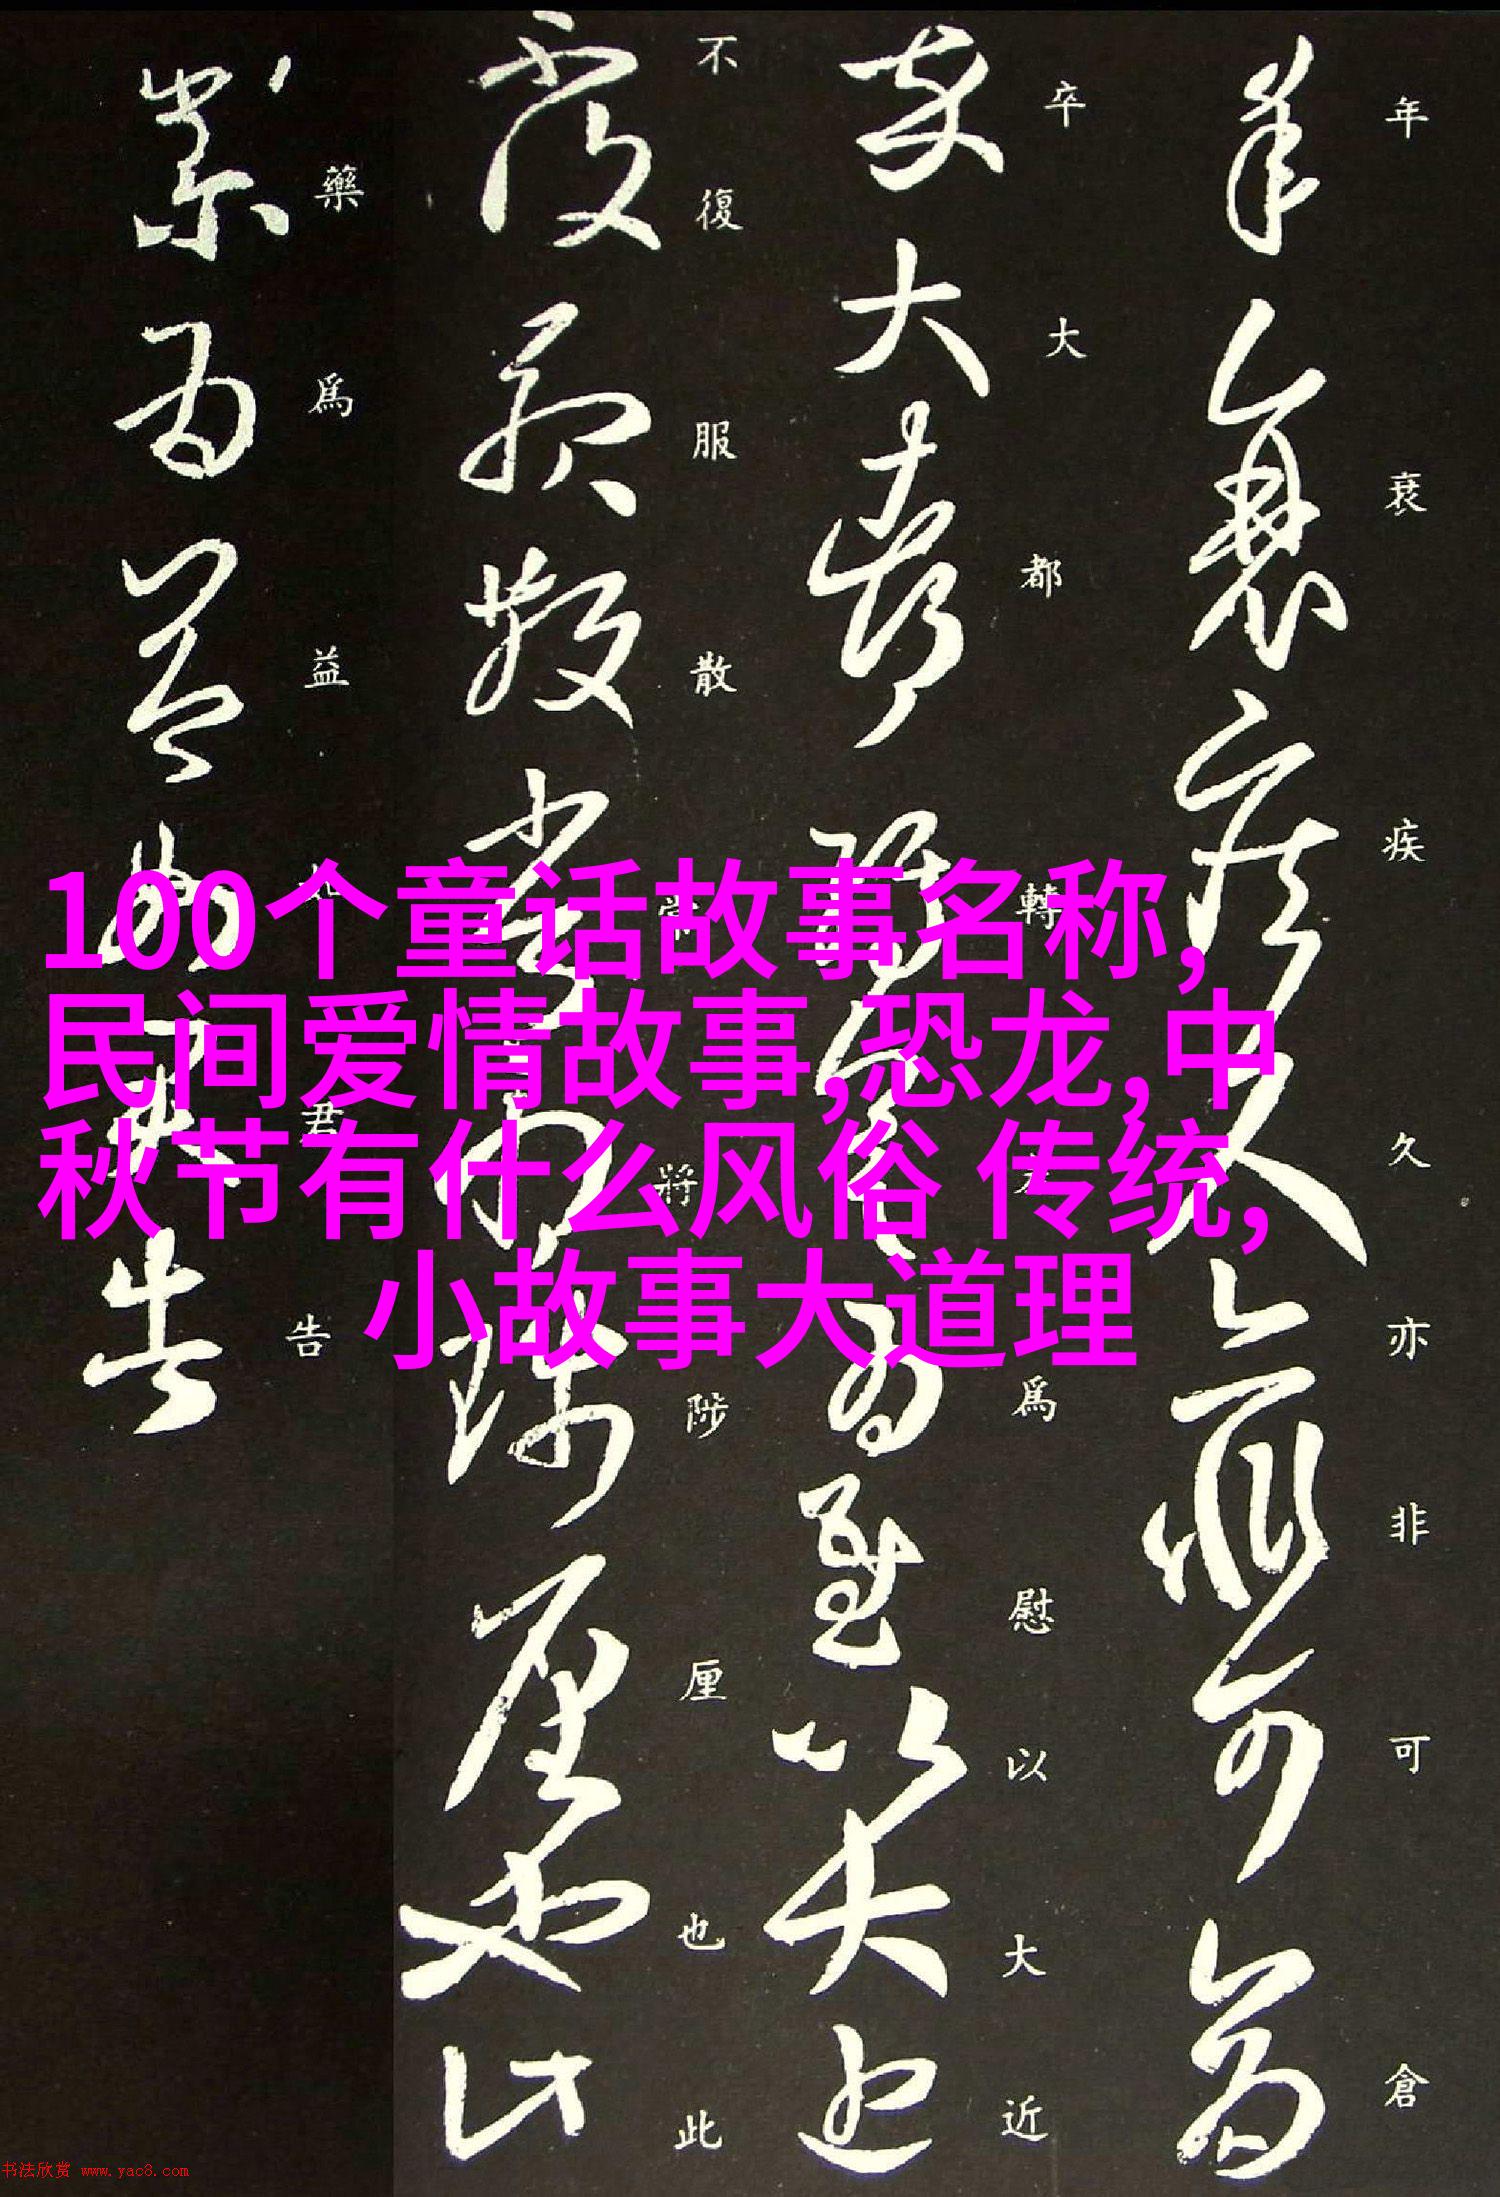 年衰疾久亦非可倉
卒大都轉為慰以大近
不復服散常將陟厘也此
藥為益君告
100个童话故事名称,
民间爱情故事,恐龙,中
秋节有什么风俗 传统,
小故事大道理
书法欣赏 www.yac8.com